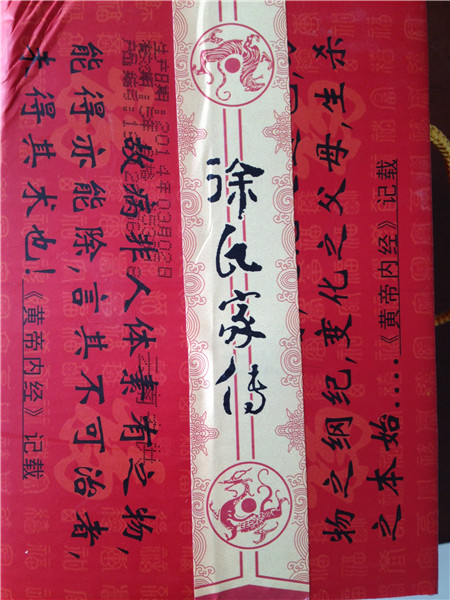 徐氏家传
物之纲纪,变化之父母,生杀
之本始....《黄帝内经》记载
数病非人体素有之物,
能得亦能除,言其不可治者,
未得其术也!《黄帝内经》记载
生产日期:2014年03月02日